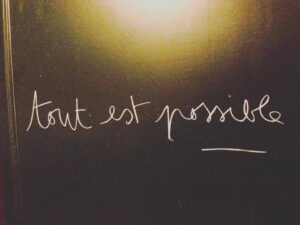 tout est possible